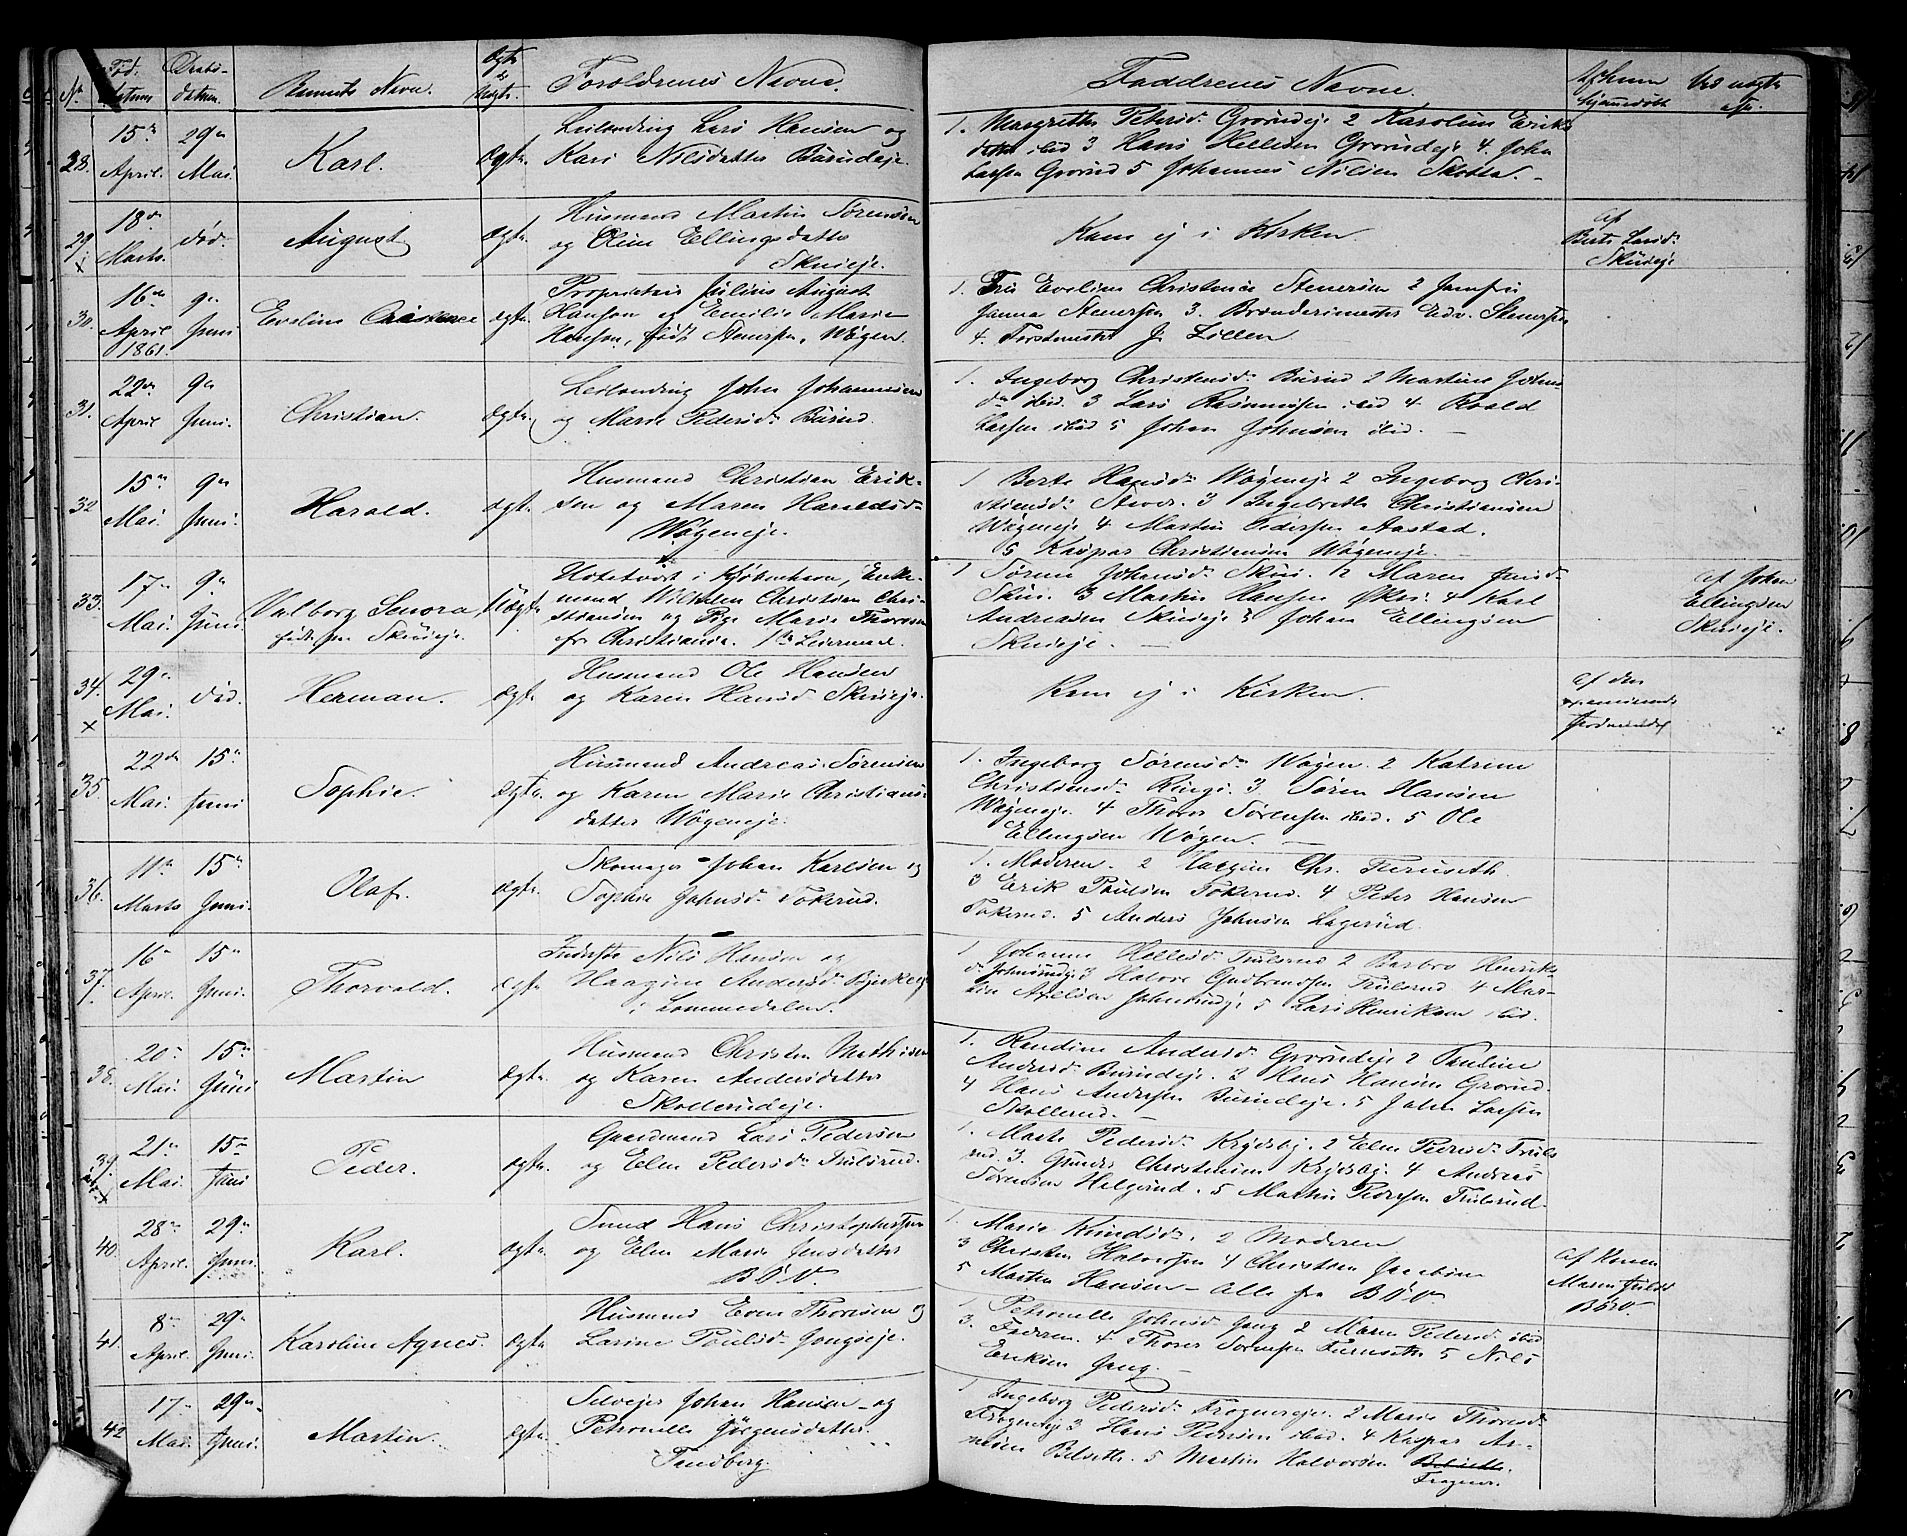 No. Fød. Datum Daabsdatum. Barnets Navn. Ægte el. Uægte. Forældrenes Navne. Faddrenes Navne. Af hvem hjemmedøbt
28. 15de April. 29de Mai. Karl. Ægte. Leilænding Lars Hansen og
Kari Nilsdatter Burudeje.
1. Margrethe Petersd. Grorudeje 2 Karoline Eriks
datter ibid 3 Hans Hellesen Grorudeje 4. John
Larsen Grorud 5 Johannes Nilsen
29 x 18de Marts. død. August Ægte Husmand Martin Sørensen
og Oline Ellingsdatter
Skuieje.
Kom ej i Kirken.
af
Berte Larsd.
Skuieje
30. 16de April 1861. 9de Juni Eveline Christence Ægte. Proprietair Julius August
Hansen og Emilie Marie
Hansen, født Stenersen, Wøgen.
1. Fru Eveline Christence Stenersen 2 Jomfru
Stenersen 3. Edv. Stenersen
4. Forstmester J.
31. 22de April 9de Juni. Christian. Ægte. Leilænding John Johannesen
og Marie Pedersd. Burud.
1. Ingeborg Christensd. Burud 2 Martine Johns
dr. ibid. 3 Lars Rasmussen ibid 4 Roald
Larsen ibid 5 Johan Johnsen ibid.
32 15de Mai. 9de Juni. Harald. Ægte. Husmand Christian Erik-
sen og Maren Haraldsd.
Wøgeneje.
1 Berte Hansd. Wøgeneje 2 Ingeborg Chri-
stiansd. Stever. 3 Ingebreth Christiansen
Wøgeneje 4 Martin Pedersen Aastad.
5 Kaspar Christiansen Wøgeneje.
33. 17de Mai. 9de Juni. Valborg Lenora,
født paa Skuieje. Uægte i Kjøbenhavn, Enke-
mand Wilhelm Christian Chri-
stiansen og Pige Marie Thoresen
fr. Christiania. 1ste Leiermaal.
1 Sørine Johansd. Skui. 2 Maren Jensd.
Skui. 3 Martin Hansen 4 Karl
Andreasen Skuieje 5 Johan Ellingsen
Skuieje.
af Johan
Ellingsen
Skuieje.
34. x 29de Mai. død. Herman. Ægte. Husmand Ole Hansen
og Karen Hansd. Skuieje.
Kom ej i Kirken.
af den
examinerede
Jordmoder
35 22de Mai. 15de Juni Sophie. Ægte. Husmand Andreas Sørensen
og Karen Marie Christians-
datter Wøgeneje.
1. Ingeborg Sørensd. Wøgen. 2 Katrine
Christiansd. Ringi. 3. Søren Hansen
Wøgeneje. 4 Thorer Sørensen ibid. 5 Ole
Ellingsen Wøgen.
36. 11te Marts 15de Juni. Olaf. Ægte. Skomager Johan Karlsen og
Sophie Johnsd. Tokerud.
1. Moderen. 2 Chr. Furuseth.
3 Erik Paulsen Tokerud. 4 Peter Hansen
Tokerud. 5 Anders Johnsen Lagerud.
37. 16de April. 15de Juni. Thorvald. Ægte Inderste Nils Hansen og
Haagine Andersd. Bjerkeeje
i Lommedalen.
1. Johanne Hellesd. Trulsrud 2 Barbro Henriks
d. Johnsrudeje 3 Halvor Gudbrandsen Trulsrud 4 Mar-
tin Axelsen Johnsrudeje 5 Lars Henriksen ibid.
38. 20de Mai. 15de Juni Martin Ægte. Husmand Christen Mathisen
og Karen Andersdatter
Skollerudeje.
1. Randine Andersd. Grorudeje 2 Pauline
Andersd. Burudeje. 3 Hans Hansen Grorud.
4 Hans Andersen Burudeje. 5 John Larsen
Skollerud.
39. 21de Mai. 15de Juni Peder. Ægte. Gaardmand Lars Pedersen
og Elen Pedersd. Trulsrud.
1. Marte Pedersd. Krydsby. 2 Elen Pedersd. Truls
rud. 3. Gunder Christensen Krydsby. 4 Andreas
Sørensen Helgerud. 5 Martin Pedersen Trulsrud.
40. 28de April. 29de Juni. Karl. Ægte. Smed Hans Christophersen
og Elen Marie Jensdatter
BØV.
1. Marie Knudsd. 2 Moderen
3 Christen Halvorsen 4 Christian Jacobsen
5 Morten Hansen – alle fra BØV
af Konen
Maren
BØV.
41. 8de April. 29de Juni. Karoline Agnes. Ægte Husmand Even Thoresen og
Larine Poulsd. Jongseje.
1. Petronelle Johnsd. Jong 2 Maren Pedersd. ibid
3. Faderen. 4 Thorer Sørensen Furuseth 5 Nils
Eriksen Jong.
42 17de Mai. 29de Juni. Martin. Ægte. Selvejer Johan Hansen og
Petronelle Jørgensdatter
Tandberg.
1 Ingeborg Pedersd. Frognereje. 2 Marie Thoresd.
Frognereje 3 Hans Pedersen ibid. 4 Kaspar Ar-
nesen Belseth. 5 Martin Halvorsen Belseth.
Frogner.